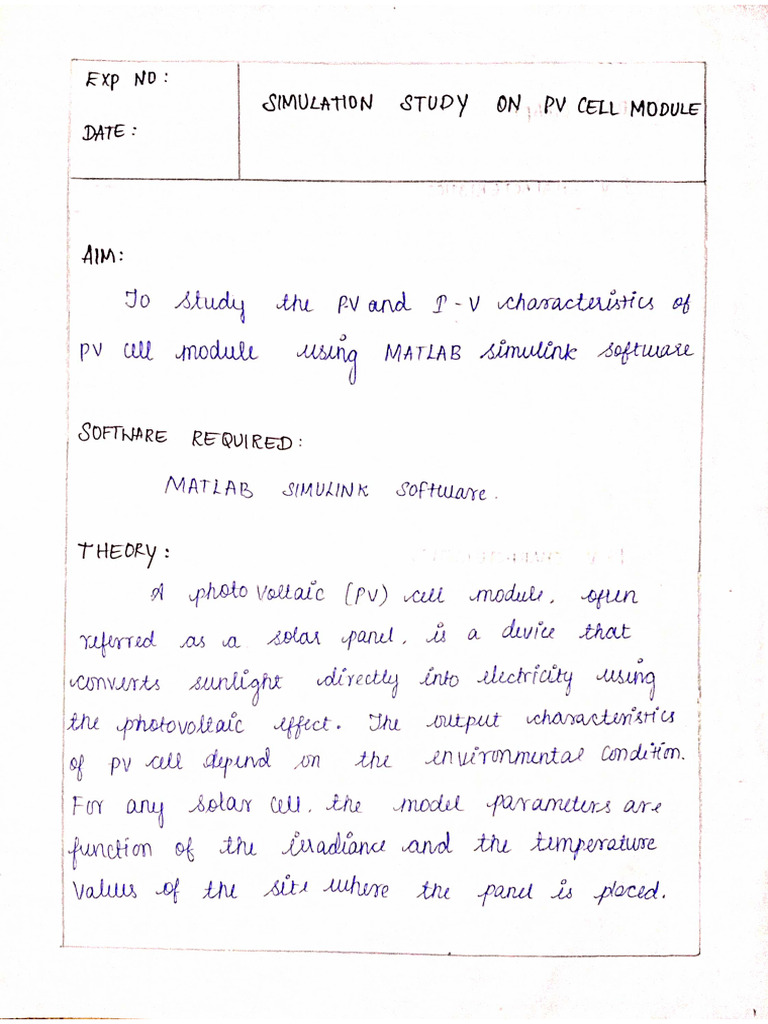 EXP NO:
SIMULATION STUDY ON PV CELL MODULE
DATE:
AIM:
To study the P.V and I-V characteristics of
PV cell module using MATLAB simulink software
SOFTWARE REQUIRED:
MATLAB SIMULINK Software.
THEORY:
A photo voltaic (PV) cell module, often
referred as a solar panel, is a device that
converts sunlight directly into electricity using
the photovoltaic effect. The output characteristics
of PV cell depend on the environmental condition.
For any solar cell, the model parameters are
function of the irradiance and the temperature
values of the site where the panel is placed.